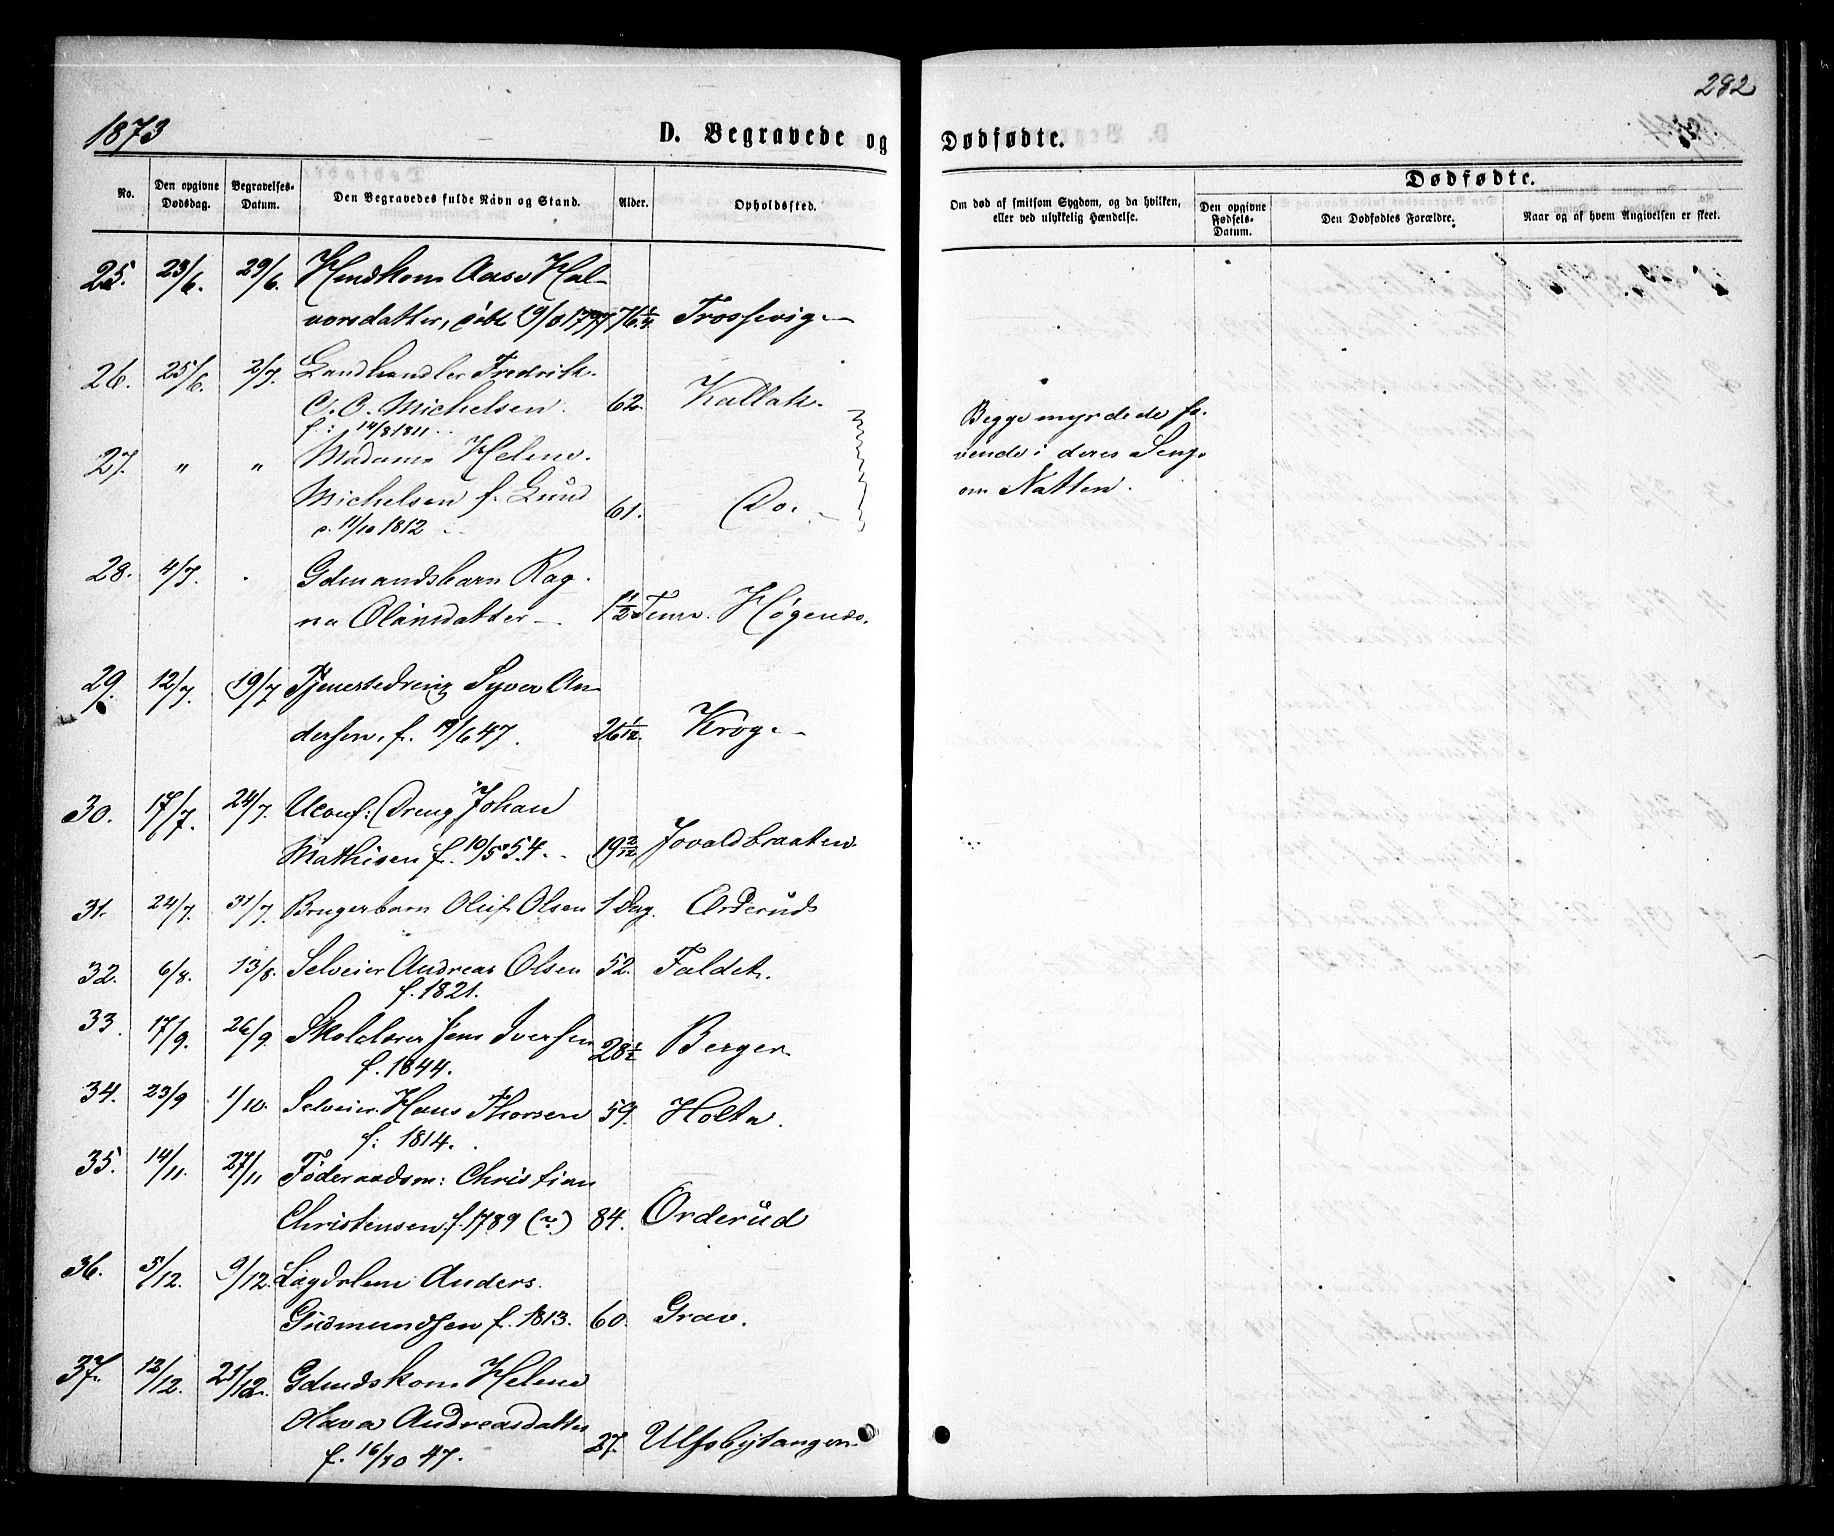 282
1873
D. Begravede og
Dødfødte.
No.
Den opgivne Dødsdag.
Begravelses-Datum.
Den Begravedes fulde Navn og Stand.
Alder.
Opholdssted.
Om død af smitsom Sygdom, og da hvilken, eller ved ulykkelig Hændelse.
Dødfødte.
Den opgivne Fødsels-Datum.
Den Dødfødtes Forældre.
Naar og af hvem Angivelsen er skeet.
25. 23/6. 29/6. Aase Hal-
vorsdatter, 76 1/4
26. 25/6. 2/7. Landhandler Fredrik
C. O. Michelsen. 62. Kallak.
f: 14/8 1811
27. " " Madame Helene
Michelsen f. Lund 61. Do.
11/10 1812
Begge myrdede so-
vende i deres Seng
om Natten.
28. 4/7. Gdmandsbarn Rag-
na Olausdatter
29. 12/7. 19/7 Tjenestedreng Syver An-
dersen, f. 19/6 47. 26 1/12. Krog
30. 17/7. 24/7. Uconf: Dreng Johan
Mathisen f. 10/5 54. 19 2/12 Jovaldbraaten
31. 24/7. 31/7. Brugerbarn Oluf Olsen 1 Dag. Orderud
32. 6/8. 13/8. Selveier Andreas Olsen 52. Faldet.
f. 1821.
33. 17/9. 26/9. Skolelærer Jens Iversen 28 1/2 Berger
f. 1844.
34. 23/9 1/10. Selveier Hans Thorsen 59. Holta.
f: 1814.
35. 14/11. 27/11 Føderaadsm: Christian
Christensen f. 1789 (?) 84. Orderud
36. 5/12. 9/12. Lægdslem Anders
Gudmundsen f. 1813. 60. Grav.
37. 12/12. 21/12. Gdmdskone Helene
Olava Andreasdatter 27. Ulfsbytangen
f. 16/10 47.